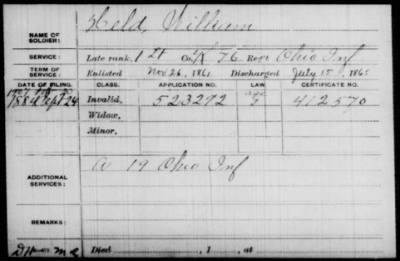 Held, William
NAME OF SOLDIER:
SERVICE: Late rank, 1 Lt Co. K, 76 Reg't Ohio Inf
TERM OF SERVICE: Enlisted Nov 26, 1861 Discharged July 15, 1865
DATE OF FILING. CLASS. APPLICATION NO. LAW. CERTIFICATE NO.
1884 Sept 24 Invalid, 523272 412570
Widow,
Minor,
ADDITIONAL SERVICES: A 19 Ohio Inf
REMARKS:
Died , 1 , at